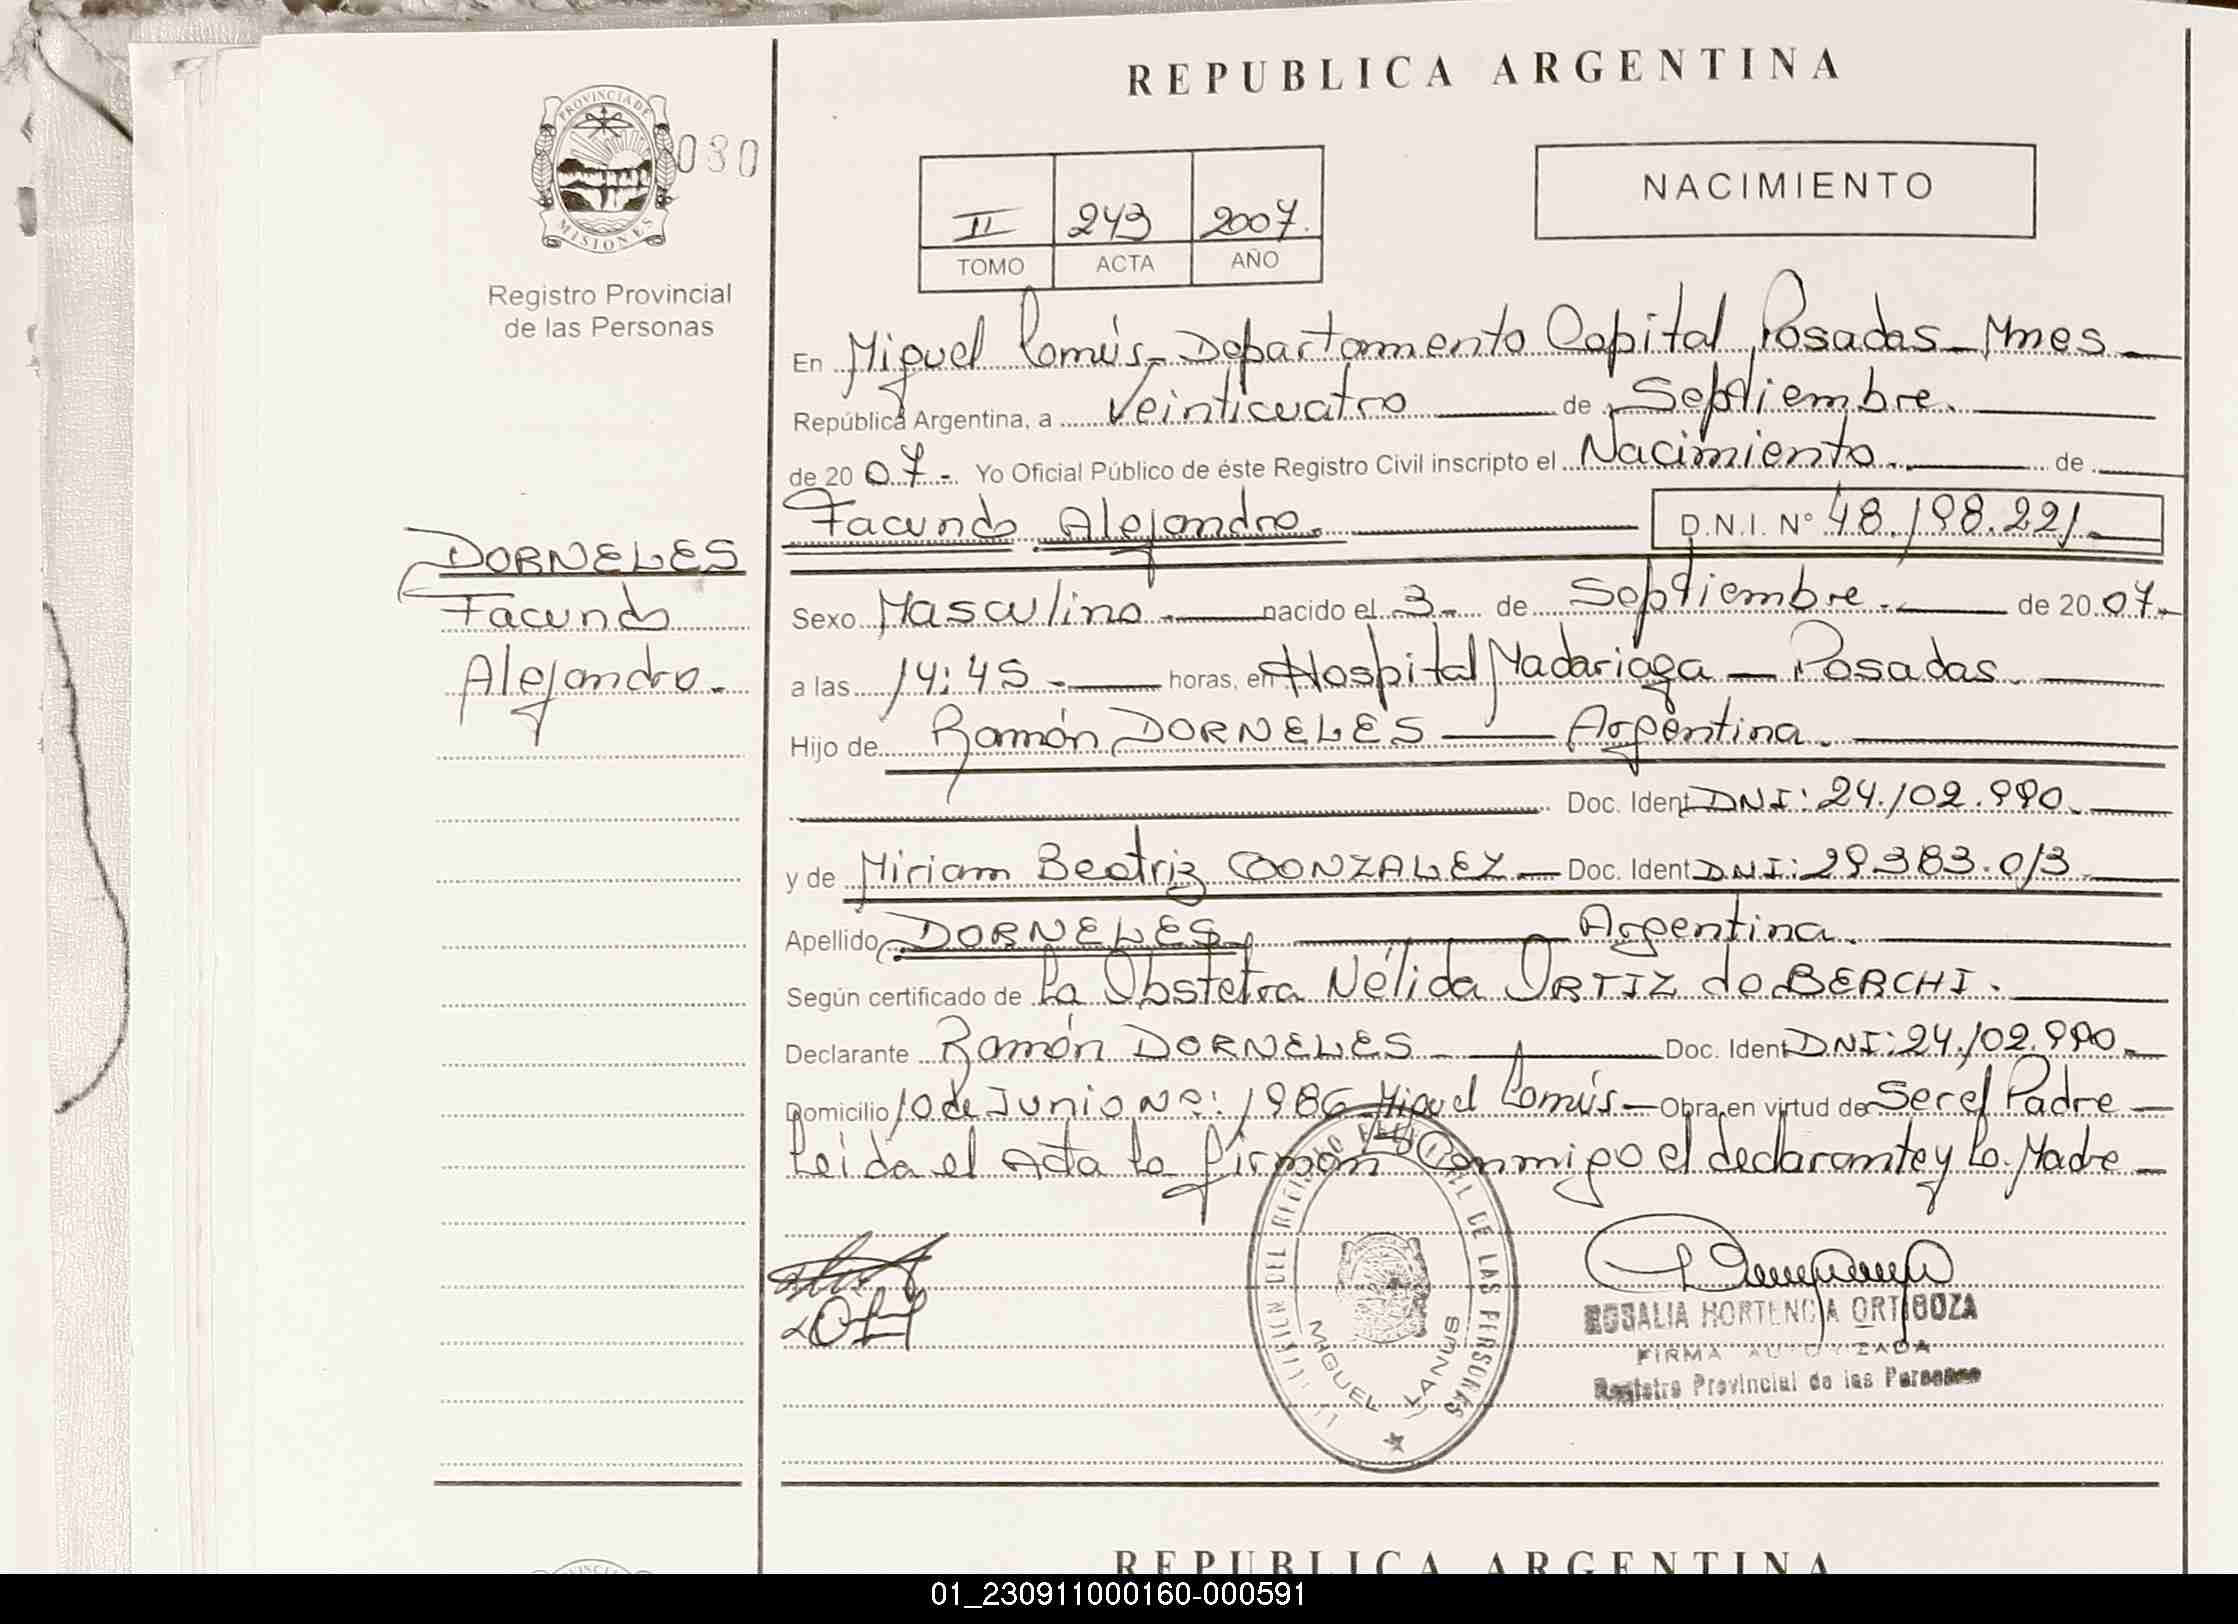 REPUBLICA ARGENTINA
PROVINCIA DE
MISIONES
030
Registro Provincial
de las Personas
II 243 2007.
TOMO ACTA AÑO
NACIMIENTO
En Miguel Lanús - Departamento Capital Posadas - Mnes
República Argentina, a Veinticuatro de Septiembre.
de 20 07.- Yo Oficial Público de éste Registro Civil inscripto el Nacimiento. de
Facundo Alejandro. D.N.I. Nº 48.198.221.
DORNELES
Facundo
Alejandro.
Sexo Masculino. nacido el 3- de Septiembre. de 20 07-
a las 14:45 - horas, en Hospital Madariaga - Posadas.
Hijo de Ramón DORNELES Argentina.
Doc. Ident DNI: 24.102.990.
y de Miriam Beatriz GONZALEZ - Doc. Ident DNI: 29.383.013
Apellido DORNELES Argentina.
Según certificado de La Obstetra Nélida ORTIZ de BERCHI.
Declarante Ramón DORNELES Doc. Ident DNI: 24.102.990.
Domicilio 10 de Junio Nº: 1986 Miguel Lanús - Obra en virtud de Ser el Padre
Leida el Acta la firman Conmigo el declarante y la Madre
DEL REGISTRO PROVINCIAL DE LAS PERSONAS
MIGUEL LANUS
ROSALIA HORTENCIA ORTIGOZA
FIRMA AUTORIZADA
Registro Provincial de las Personas
REPUBLICA ARGENTINA
01_230911000160-000591